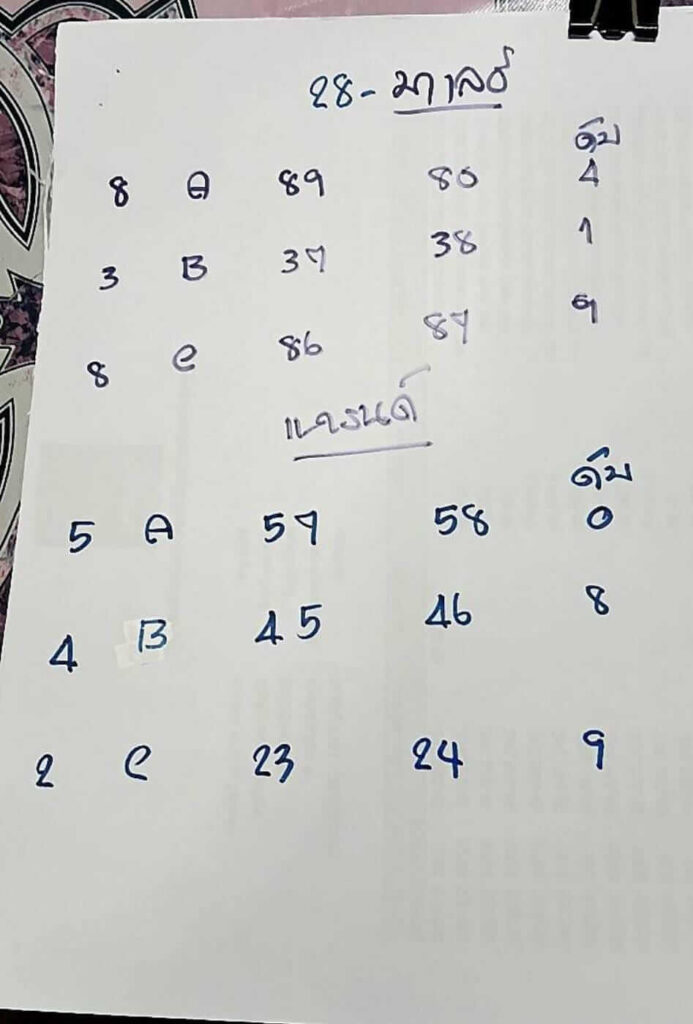 28- มาเลย์
ดับ
8 A 89 80 4
3 B 37 38 1
8 C 86 87 9
แกรนด์
ดับ
5 A 57 58 0
4 B 45 46 8
2 C 23 24 9